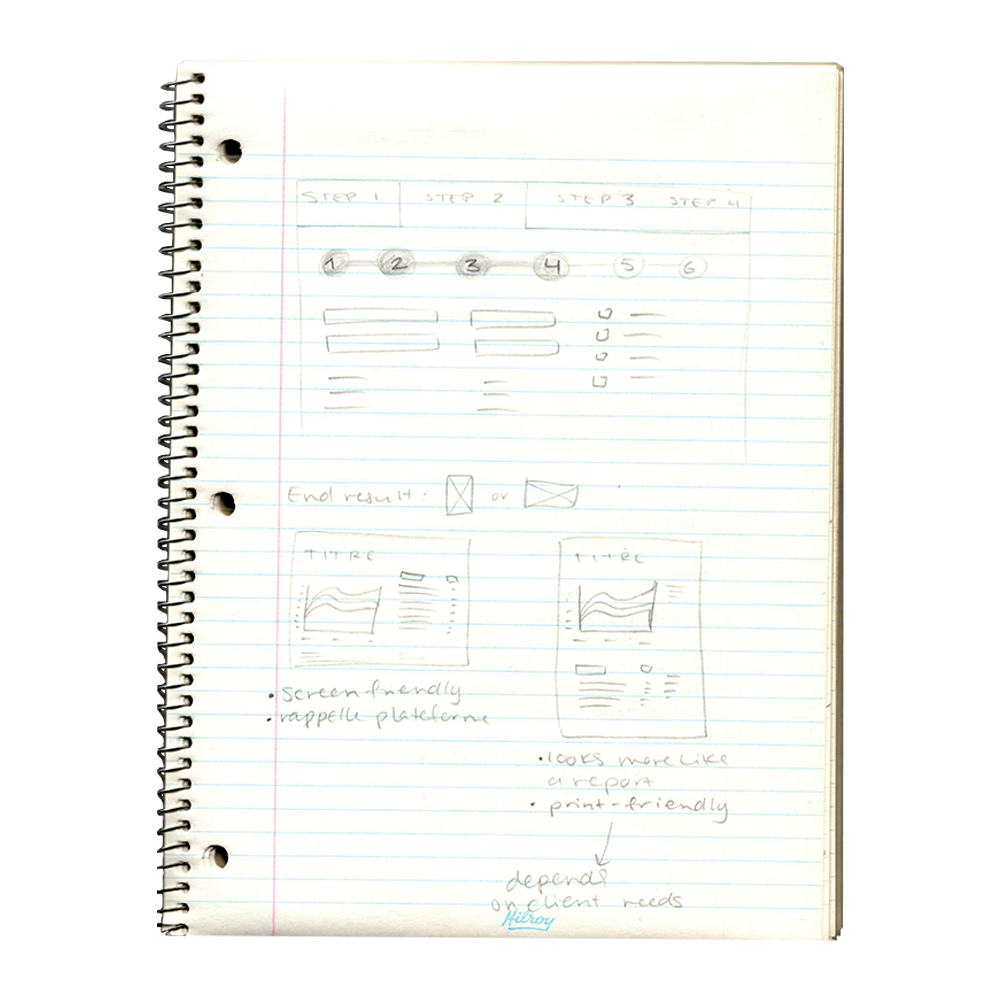 STEP 1 STEP 2 STEP 3 STEP 4
1 2 3 4 5 6
End result: or
TITRE
TITRE
• screen-friendly
• rappelle plateforme
• looks more like
a report
• print-friendly
depends
on client needs
Hilroy